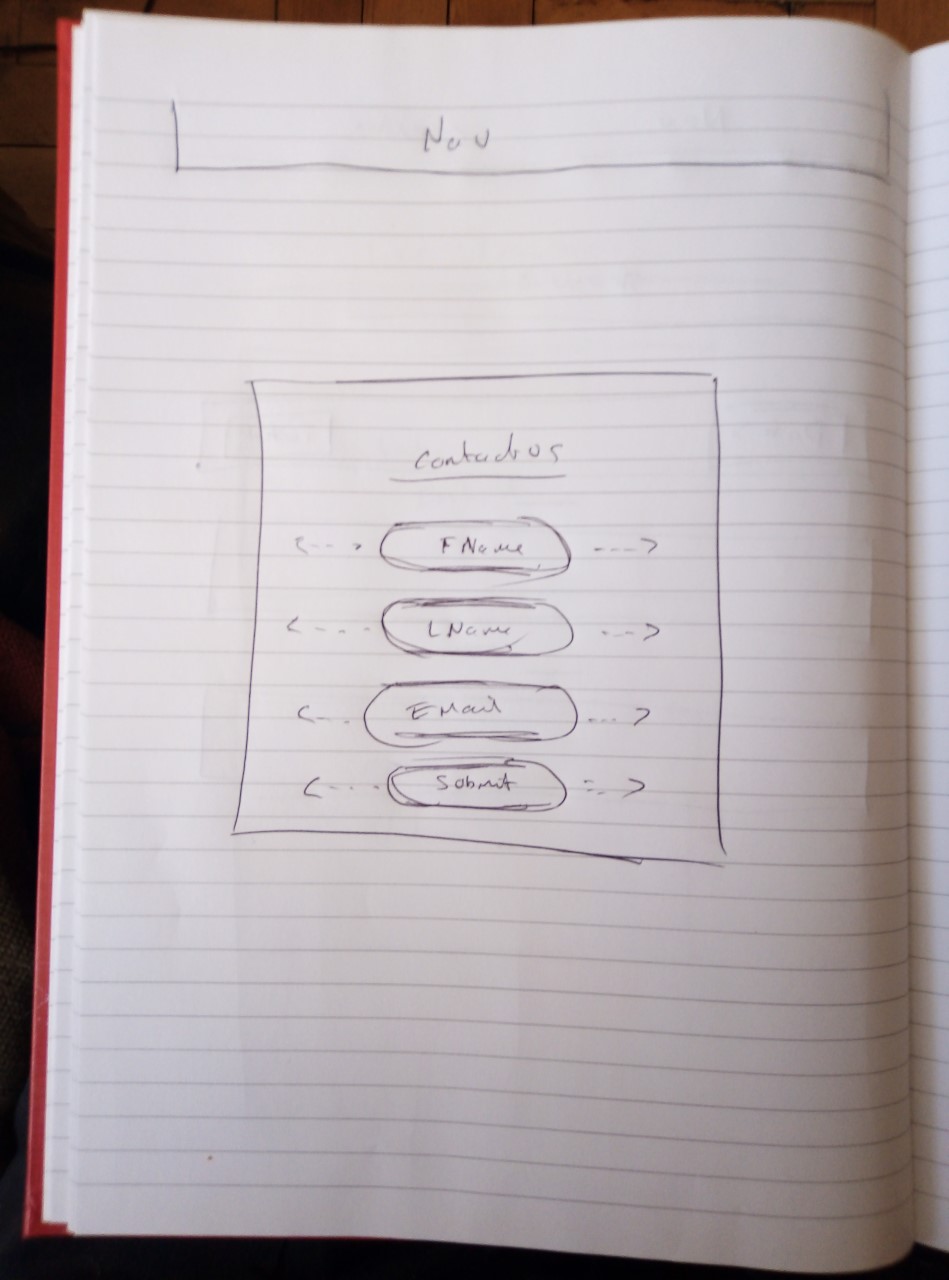 Nav
Contact us
FName
LName
EMail
Submit